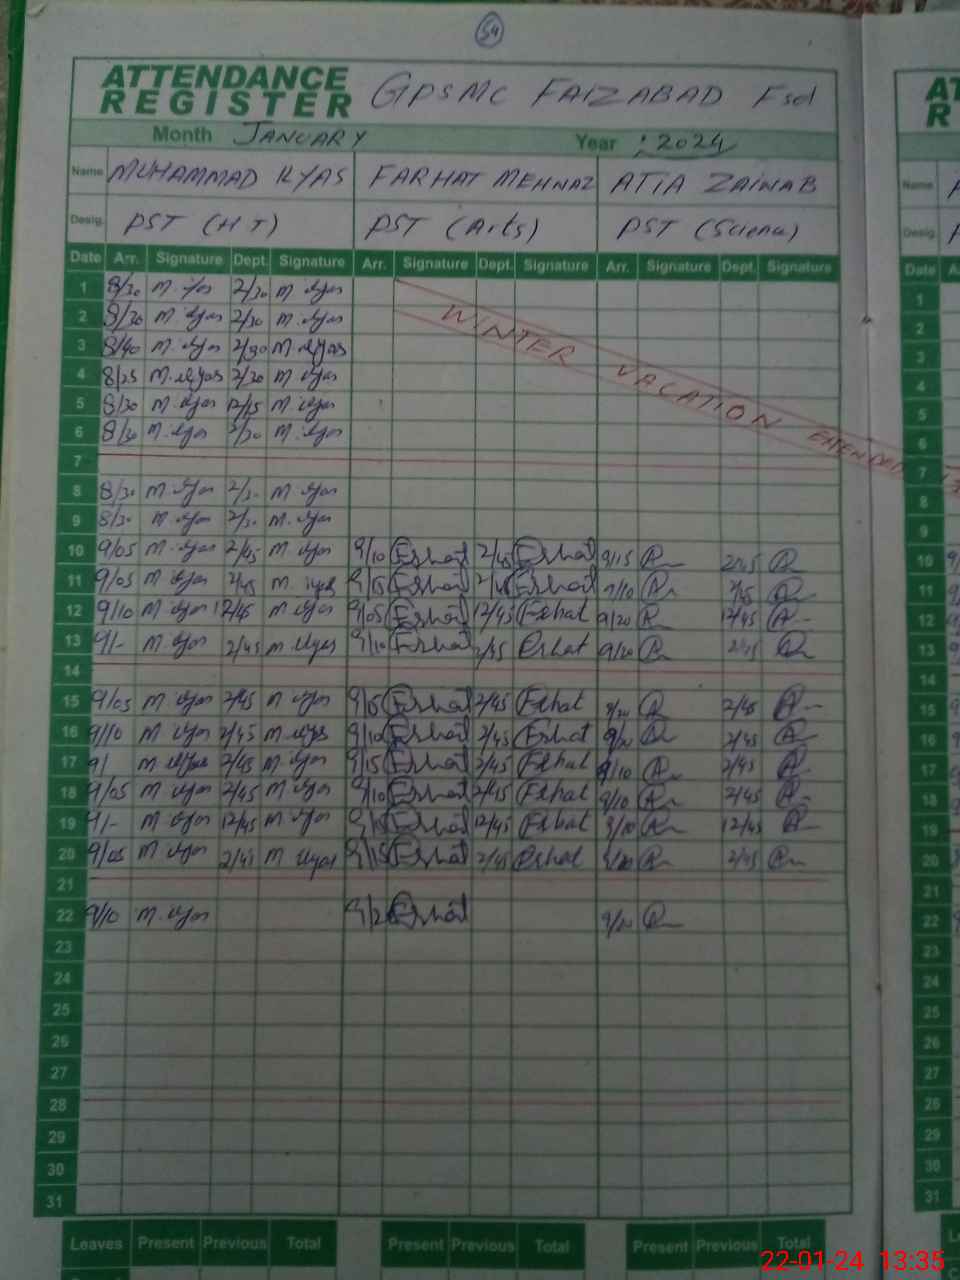 54
ATTENDANCE REGISTER GPSMC FAIZABAD Fsd
Month JANUARY Year : 2024
Name MUHAMMAD ILYAS FARHAT MEHNAZ ATIA ZAINAB
Desig. PST (HT) PST (Arts) PST (Science)
Date Arr. Signature Dept. Signature Arr. Signature Dept. Signature Arr. Signature Dept. Signature
1 8/30 M. Ilyas 2/30 M. Ilyas
2 8/30 M. Ilyas 2/30 M. Ilyas
3 8/40 M. Ilyas 2/30 M. Ilyas
4 8/25 M. Ilyas 2/20 M. Ilyas
5 8/30 M. Ilyas 12/15 M. Ilyas
6 8/30 M. Ilyas 2/30 M. Ilyas
WINTER VACATION EXTENDED
7
8 8/30 M. Ilyas 2/30 M. Ilyas
9 8/30 M. Ilyas 2/30 M. Ilyas
10 9/05 M. Ilyas 2/45 M. Ilyas 9/10 Farhat 2/45 Farhat 9/15 2/45
11 9/05 M. Ilyas 2/45 M. Ilyas 9/15 Farhat 2/45 Farhat 9/10 2/45
12 9/10 M. Ilyas 12/45 M. Ilyas 9/05 Farhat 12/45 Farhat 9/20 12/45
13 9/- M. Ilyas 2/45 M. Ilyas 9/10 Farhat 2/45 Farhat 9/20 2/45
14
15 9/05 M. Ilyas 2/45 M. Ilyas 9/15 Farhat 2/45 Farhat 9/20 2/45
16 9/10 M. Ilyas 2/45 M. Ilyas 9/10 Farhat 2/45 Farhat 9/20 2/45
17 9/ M. Ilyas 2/45 M. Ilyas 9/15 Farhat 2/45 Farhat 9/10 2/45
18 9/05 M. Ilyas 2/45 M. Ilyas 9/10 Farhat 2/45 Farhat 9/10 2/45
19 9/- M. Ilyas 12/45 M. Ilyas Farhat 12/45 Farhat 9/10 12/45
20 9/05 M. Ilyas 2/45 M. Ilyas 9/15 Farhat 2/45 Farhat 2/45
21
22 9/10 M. Ilyas 9/20 Farhat 9/20
23
24
25
26
27
28
29
30
31
Leaves Present Previous Total Present Previous Total Present Previous Total
22-01-24 13:35